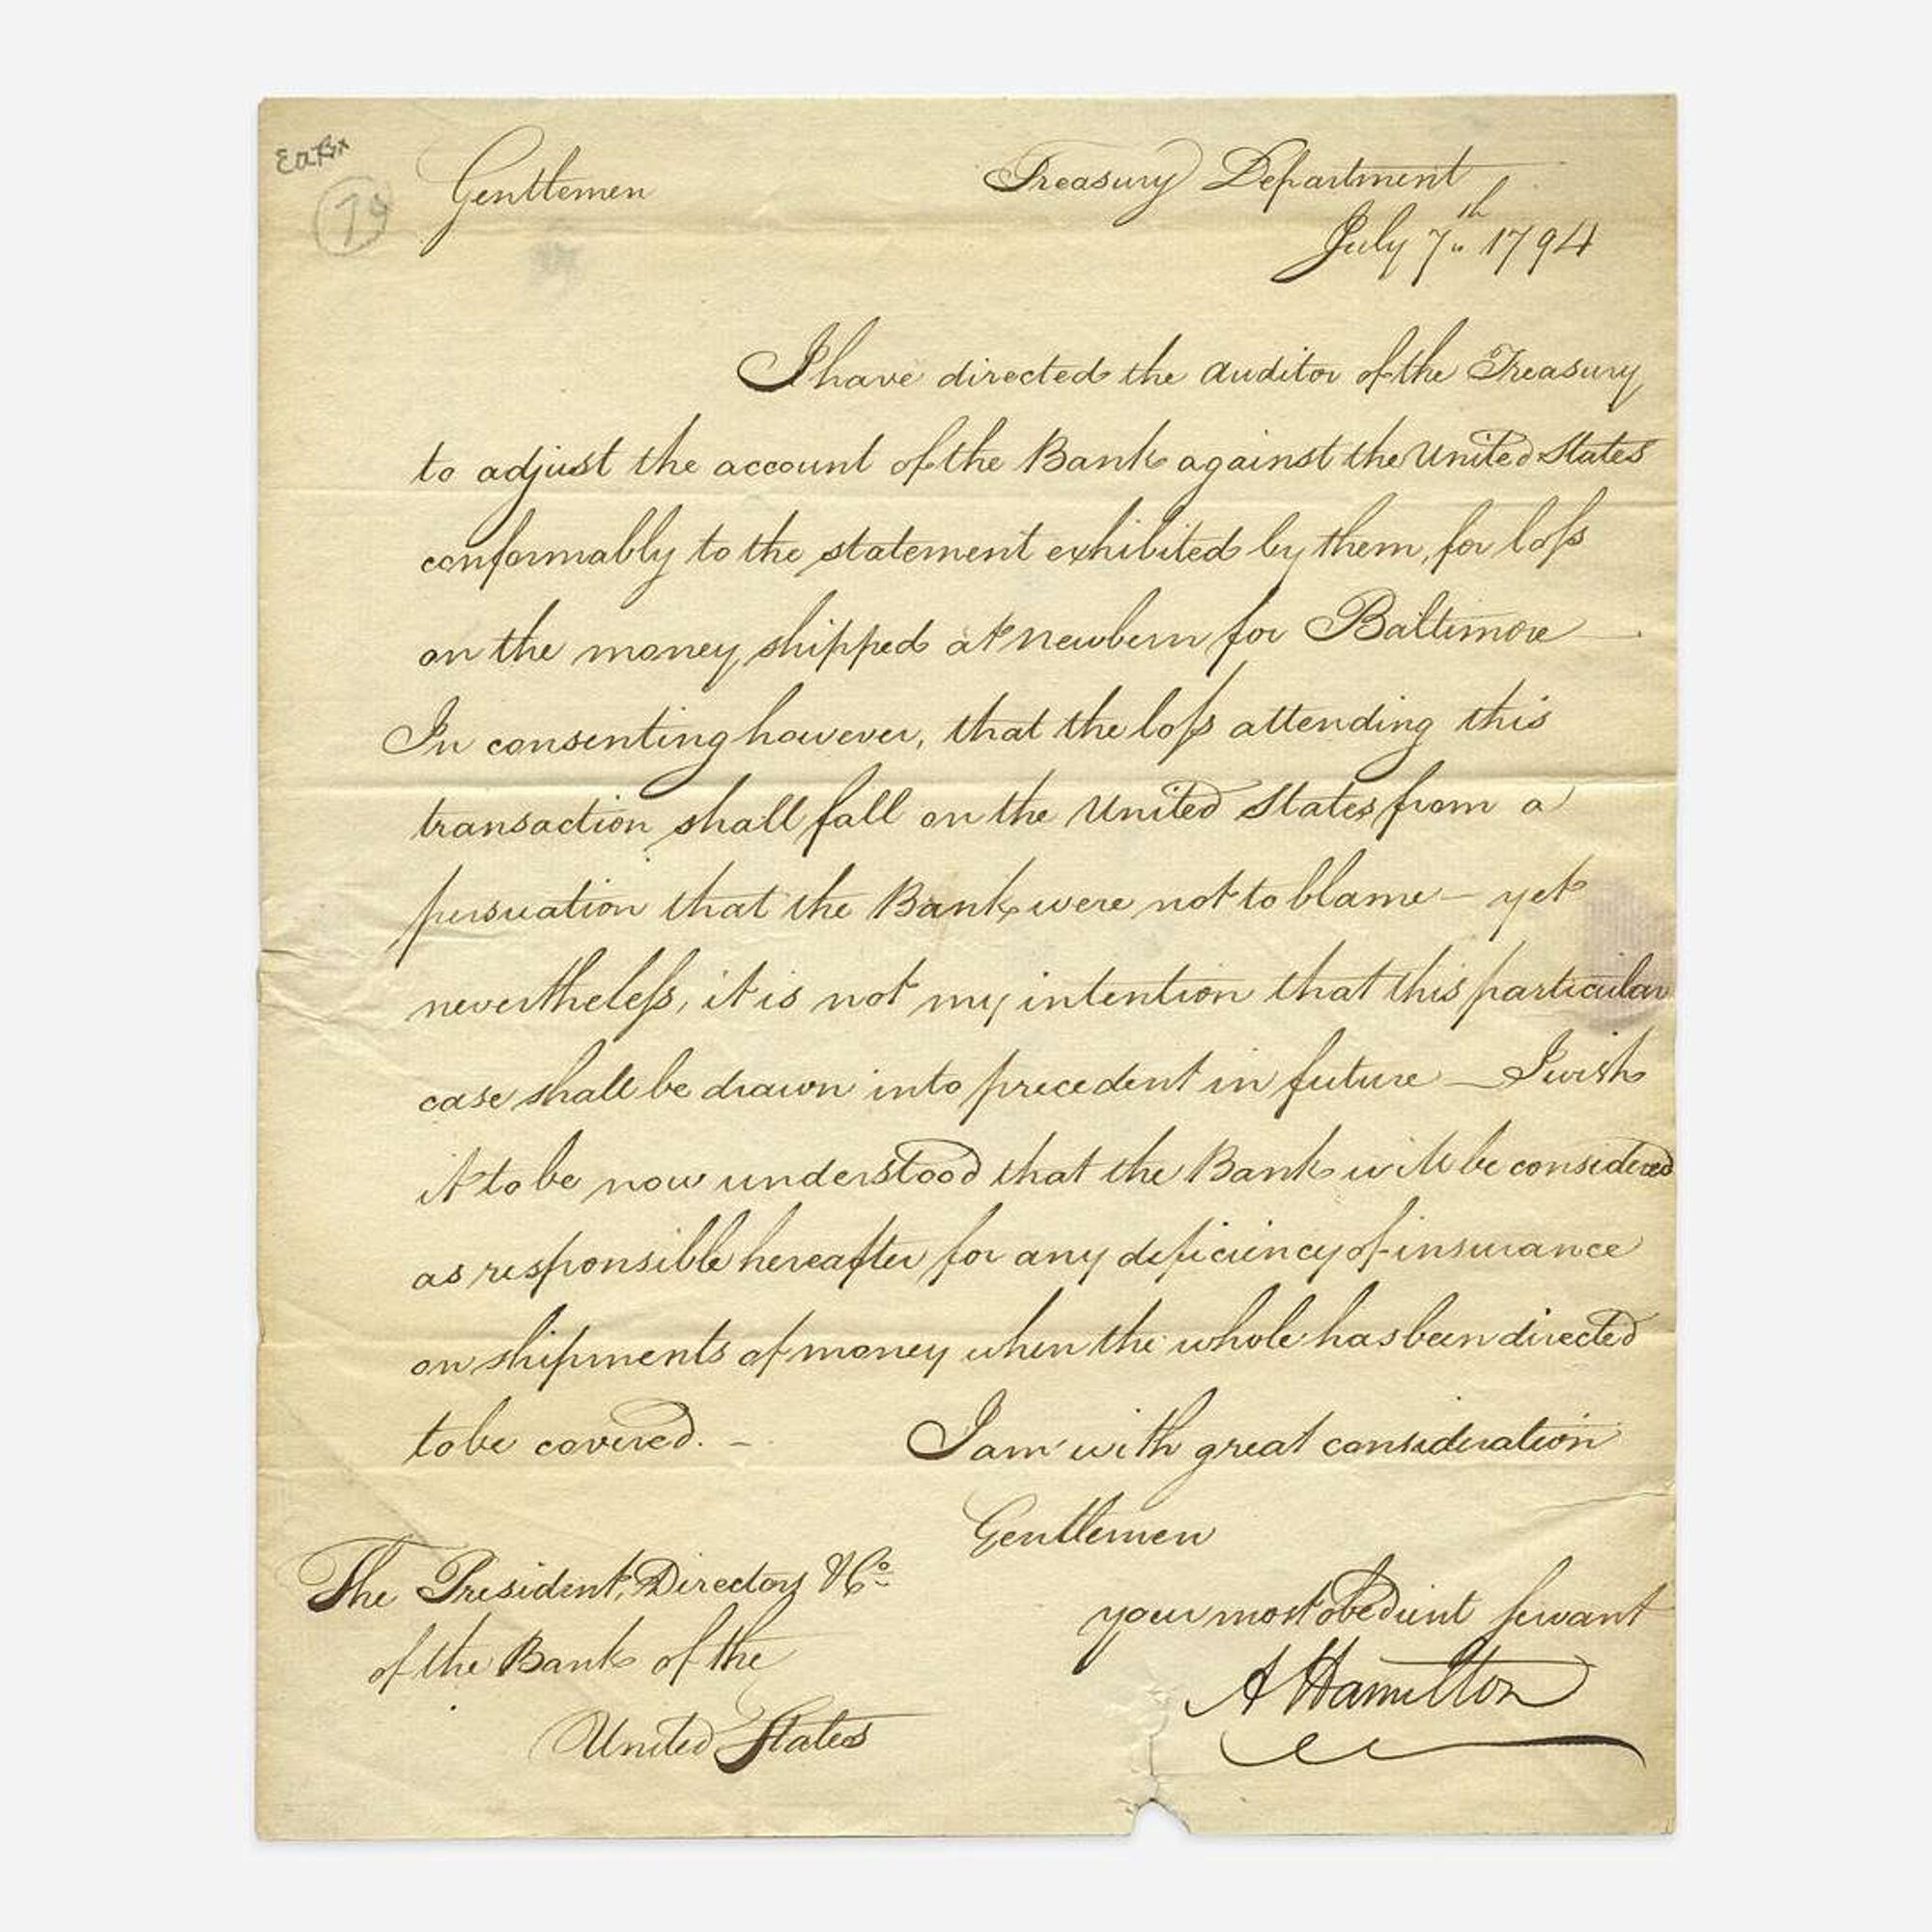 Gentlemen
Treasury Department
July 7th 1794
I have directed the auditor of the Treasury
to adjust the account of the Bank against the United States
conformably to the statement exhibited by them, for loſs
on the money shipped at Newbern for Baltimore —
In consenting however, that the loſs attending this
transaction shall fall on the United States from a
persuation that the Bank were not to blame — yet
nevertheleſs, it is not my intention that this particular
case shall be drawn into precedent in future — I wish
it to be now understood that the Bank will be considered
as responsible hereafter for any deficiency of insurance
on shipments of money when the whole has been directed
to be covered. —
I am with great consideration
Gentlemen
your most obedient servant
A Hamilton
The President, Directors & Co
of the Bank of the
United States